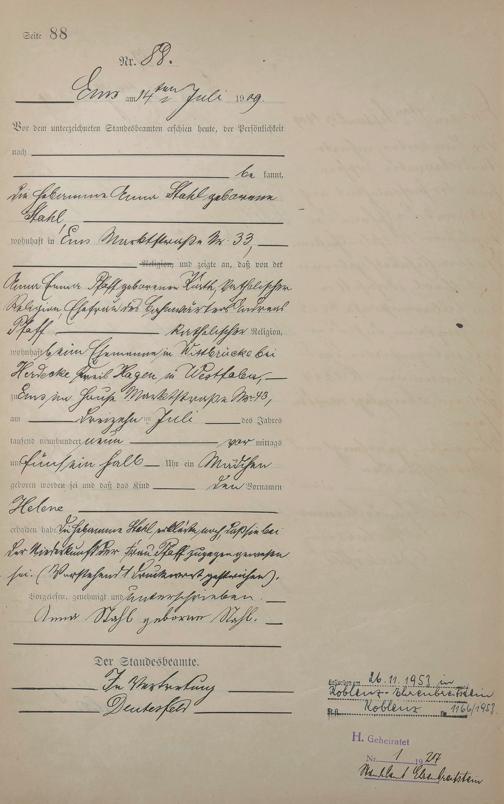 Seite 88
Nr. 88.
Ems am 14ten Juli 1909.
Vor dem unterzeichneten Standesbeamten erschien heute, der Persönlichkeit
nach
be kannt,
die Hebamme Anna Stahl geborene
Stahl,
wohnhaft in Ems Marktstraße Nr. 33,
Religion, und zeigte an, daß von der
Anna Emma Pfaff geborenen Kurth, katholischer
Religion Ehefrau des Bahnwärters Andreas
Pfaff katholischer Religion,
wohnhaft beim Ehemanne in Wittbräucke bei
Herdecke, Kreis Hagen in Westfalen,
zu Ems, im Hause Marktstraße Nr. 43,
am dreizehnten Juli des Jahres
tausend neunhundert neun vor mittags
um fünfeinhalb Uhr ein Mädchen
geboren worden sei und daß das Kind den Vornamen
Helene
erhalten habe. Die Hebamme Stahl erklärte noch, daß sie bei
der Niederkunft der Frau Pfaff zugegen gewesen
sei. (Vorstehend 1 Druckwort gestrichen).
Vorgelesen, genehmigt und unterschrieben.
Anna Stahl geborene Stahl.
Der Standesbeamte.
In Vertretung
Deusterfeld
26.11.1953 in
Koblenz-Ehrenbreitstein
Koblenz Nr. 1166/1953
H. Geheiratet
Nr. 1 1927
Standesamt Ehrenbreitstein